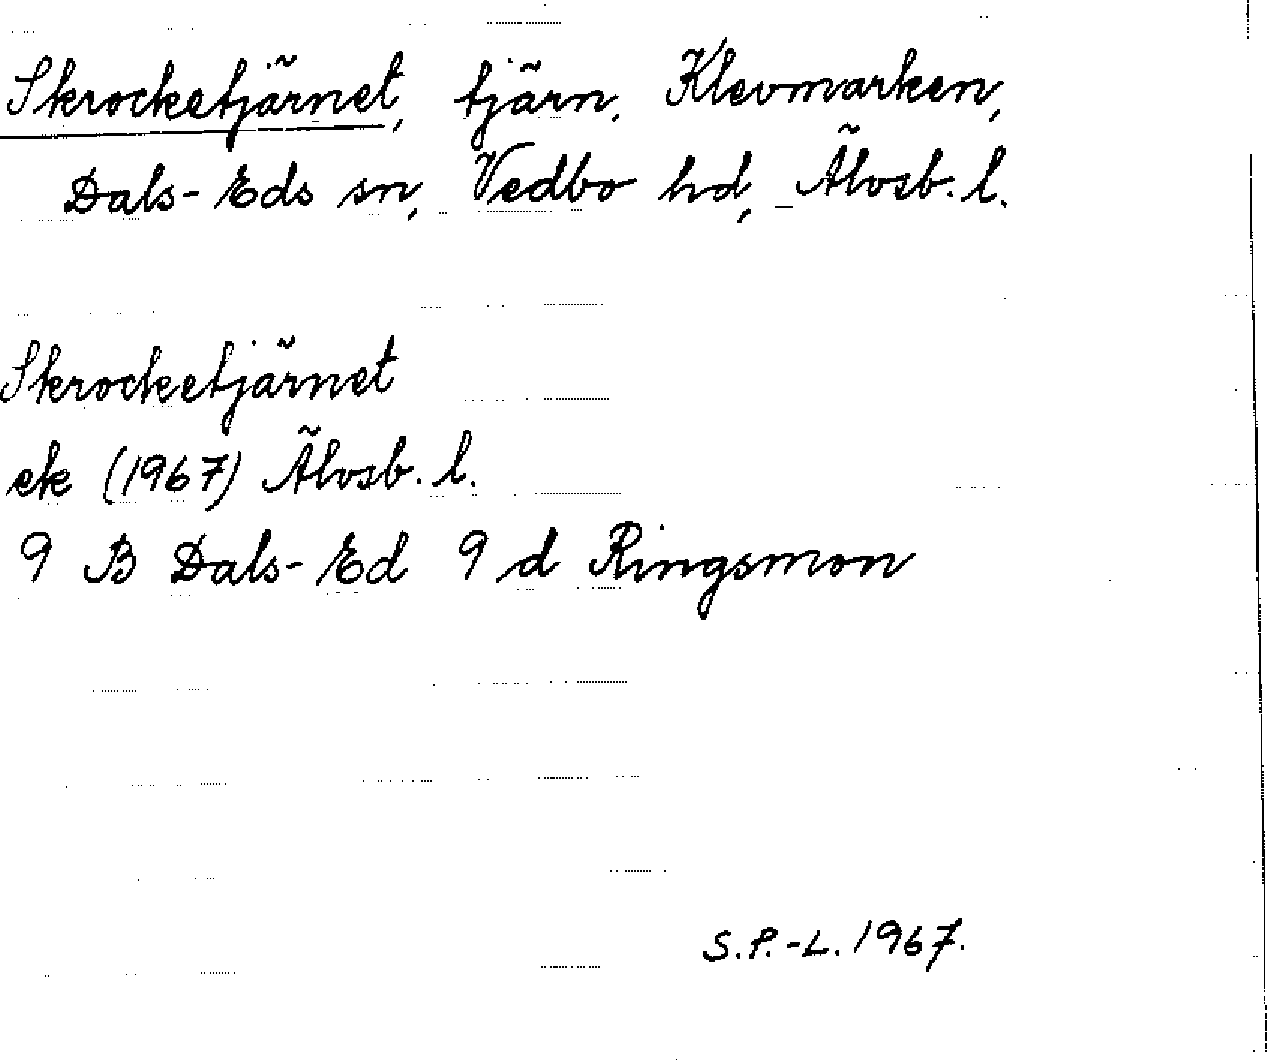 Skrocketjärnet, tjärn, Klevmarken,
Dals-Eds sn, Vedbo hd, Älvsb. l.
Skrocketjärnet
ek (1967) Älvsb. l.
9 B Dals-Ed 9 d Ringsmon
S.P.-L. 1967.